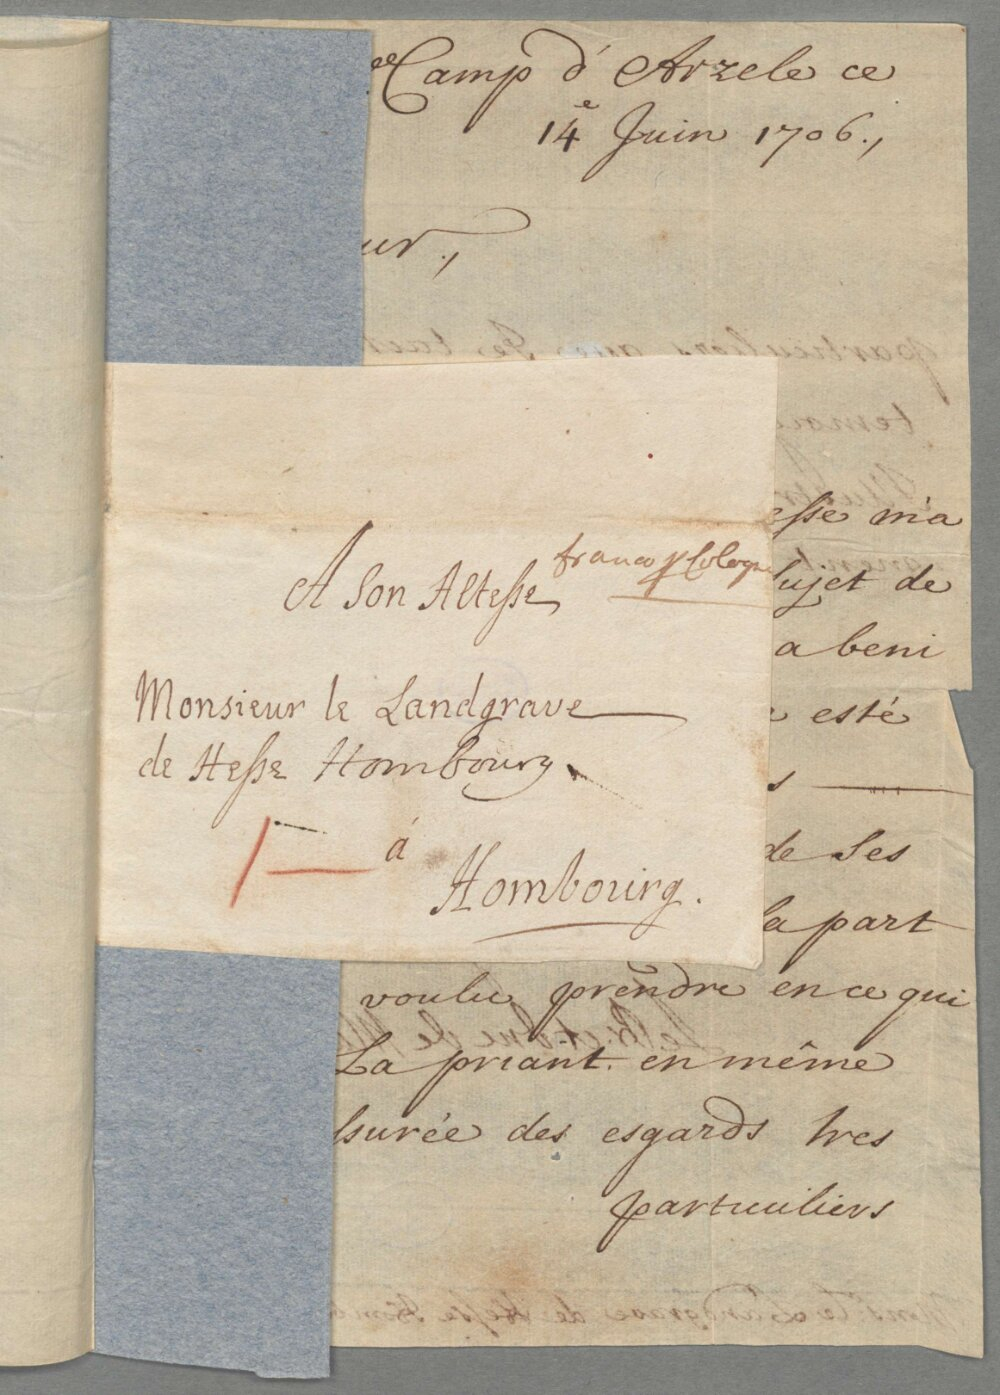 Camp d' Arzele ce
14e Juin 1706.,
ur.,
esse m'a
sujet de
a beni
esté
s
de Ses
la part
voulu prendre en ce qui
La priant en même
ssurée des esgards tres
particuiliers
franco p Cologne
A Son Altesse
Monsieur le Landgrave
de Hesse Hombourg
á
Hombourg.